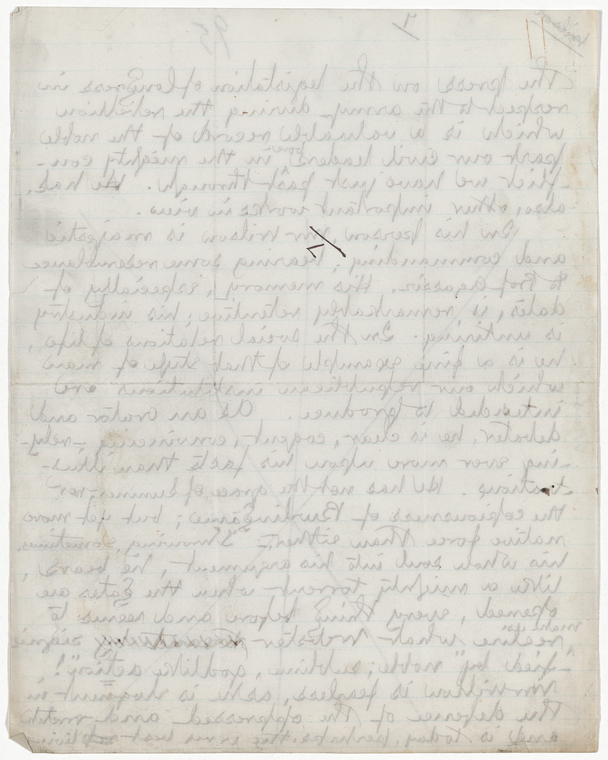 95 7 Wilson
the press on the legislation of Congress in
respect to the army during the rebellion
which is a valuable record of the noble
part our civil leaders bore in the mighty con-
flict we have just past through. He has,
also, other important works in view.
In his person Mr Wilson is majestic
and commanding, bearing some resemblance
to Prof Agassiz. His memory, especially of
dates, is remarkably retentive; his industry
is untiring. In the social relations of life,
he is a fine example of that style of man
which our republican institutions are
intended to produce. As an orator and
debater, he is clear, cogent, convincing - rely-
ing ever more upon his facts than illus-
trations. He has not the grace of Sumner, nor
the copiousness of Burlingame; but yet more
native force than either. Sometimes,
his whole soul into his argument, he bears,
like a mighty torrent when the gates are
opened, every thing before and seems to
realize what Webster might have signi-
fied by "noble, sublime, godlike action"!
Mr Wilson is fearless, as he is eloquent in
the defence of the oppressed and
and is today, perhaps, the very best